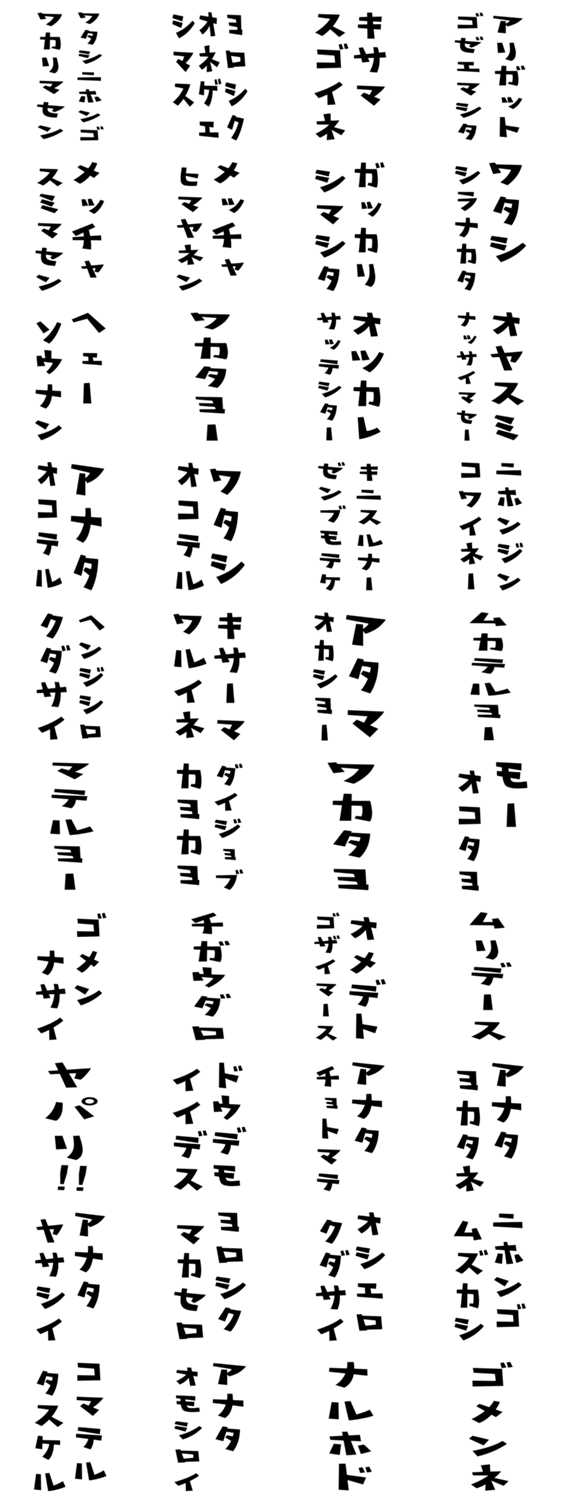 ワタシニホンゴ
ワカリマセン
ヨロシク
オネゲェ
シマス
キサマ
スゴイネ
アリガット
ゴゼエマシタ
メッチャ
スミマセン
メッチャ
ヒマヤネン
ガッカリ
シマシタ
ワタシ
シラナカタ
ヘェー
ソウナン
ワカタヨー
オツカレ
サッテシター
オヤスミ
ナッサイマセー
アナタ
オコテル
ワタシ
オコテル
キニスルナー
ゼンブモテケ
ニホンジン
コワイネー
ヘンジシロ
クダサイ
キサーマ
ワルイネ
アタマ
オカショー
ムカテルヨー
マテルヨー
ダイジョブ
カヨカヨ
ワカタヨ
モー
オコタヨ
ゴメン
ナサイ
チガウダロ
オメデト
ゴザイマース
ムリデース
ヤパリ!!
ドウデモ
イイデス
アナタ
チョトマテ
アナタ
ヨカタネ
アナタ
ヤサシイ
ヨロシク
マカセロ
オシエロ
クダサイ
ニホンゴ
ムズカシ
コマテル
タスケル
アナタ
オモシロイ
ナルホド
ゴメンネ